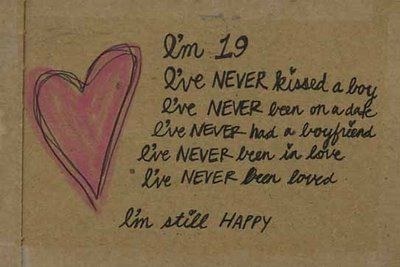 I'm 19
I've NEVER kissed a boy
I've NEVER been on a date
I've NEVER had a boyfriend
I've NEVER been in love
I've NEVER been loved
I'm still HAPPY